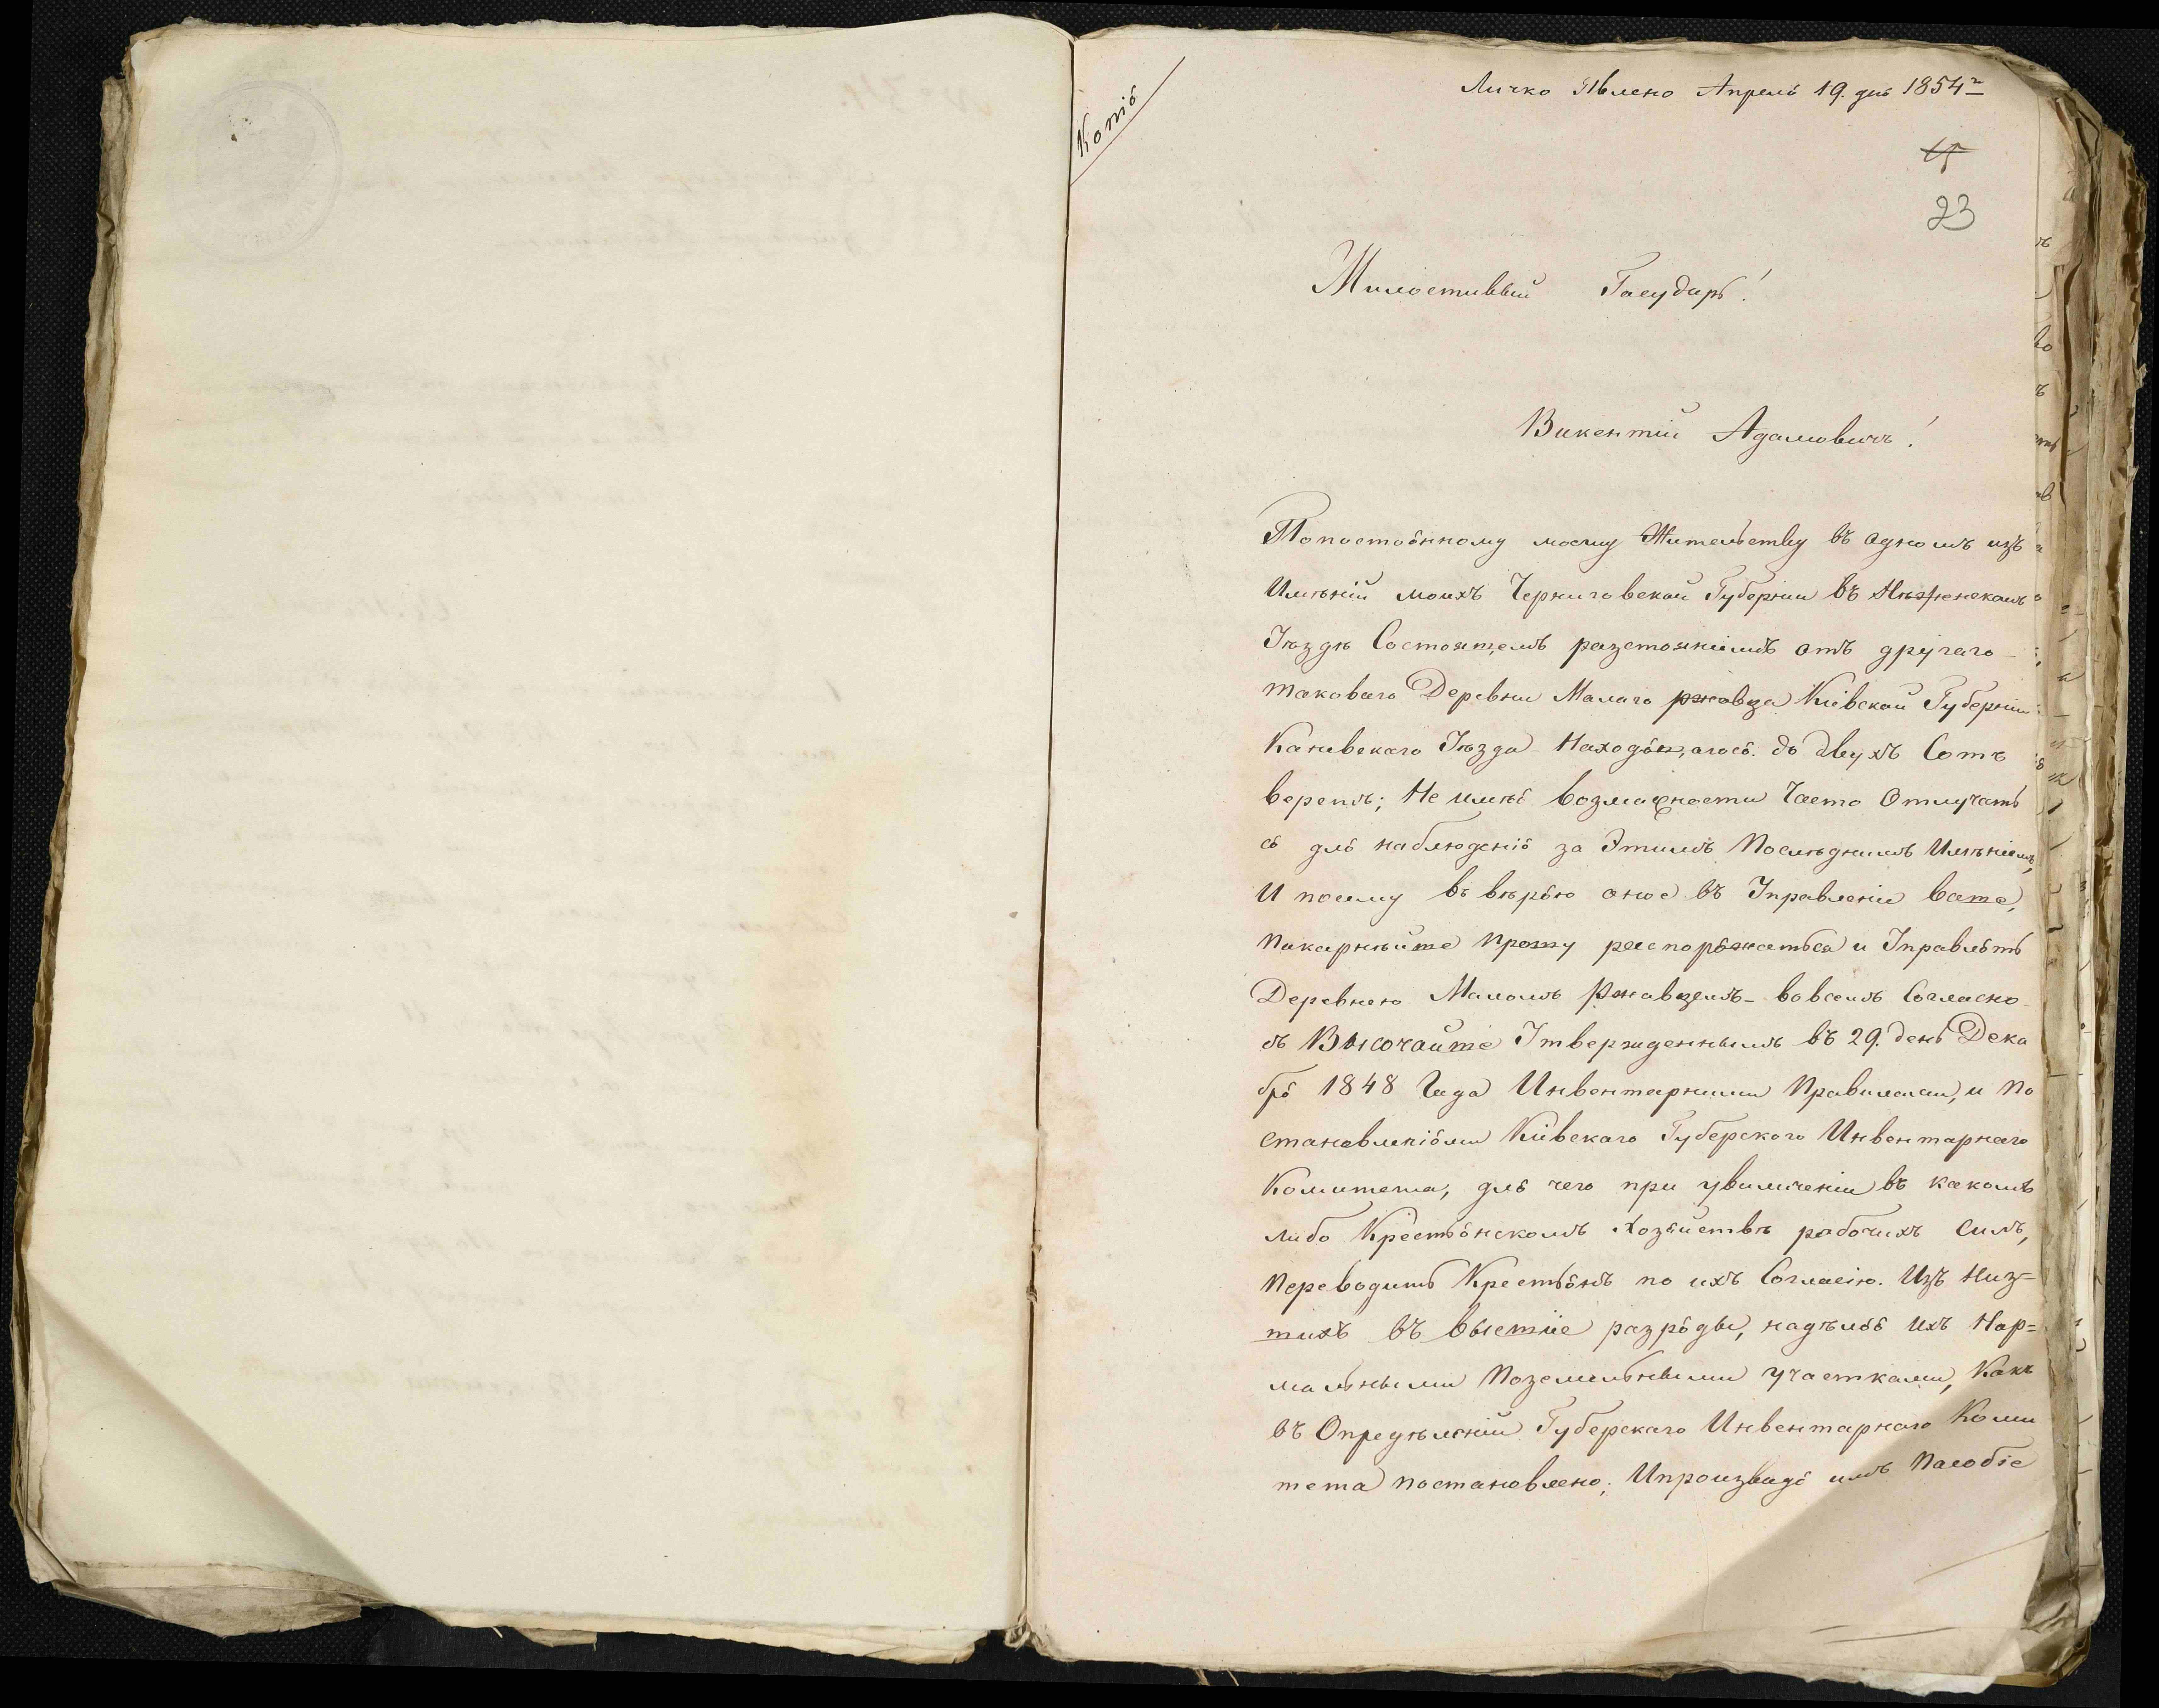 Копія
Личко Явлено Апреля 19. дня 1854 г
15
23
Милостивый Государь!
Викентій Адамовичъ!
По постоянному моему Жительству въ одномъ изъ
Имѣній моихъ Черниговской Губерніи въ Нѣженскомъ
Уѣздѣ Состоящемъ разстояніимъ отъ другаго
таковаго Деревни Малаго ржавца Кіевской Губерніи
Каневскаго Уѣзда Находящагося до двухъ Сотъ
верстъ; Не имѣя возможности Часто Отлучать
ся для наблюденія за Этимъ Послѣднимъ Имѣніемъ,
И посему ввѣряю оное въ Управленіи ваше,
Покарнѣйше прошу распоряжаться и Управлять
Деревнею Маломъ Ржавцемъ - вовсемъ Согласно
съ Высочайше Утвержденнымъ въ 29. день Дека
бря 1848 Года Инвентарними Правилами, и по
становленіями Кіевскаго Губерского Инвентарнаго
Комитета, для чего при увиличеніи въ какомъ
либо Крестьянскомъ Хозяйствѣ рабочихъ Силъ,
Переводить Крестьянъ по ихъ Согласію. Изъ Низ=
шихъ въ высшіе разряды, надѣляя Ихъ Нор=
мальными Поземельными участками, Какъ
въ Опредѣленіи Губерскаго Инвентарнаго Коми
тета постановлено; Ипроизводя имъ Пособіе